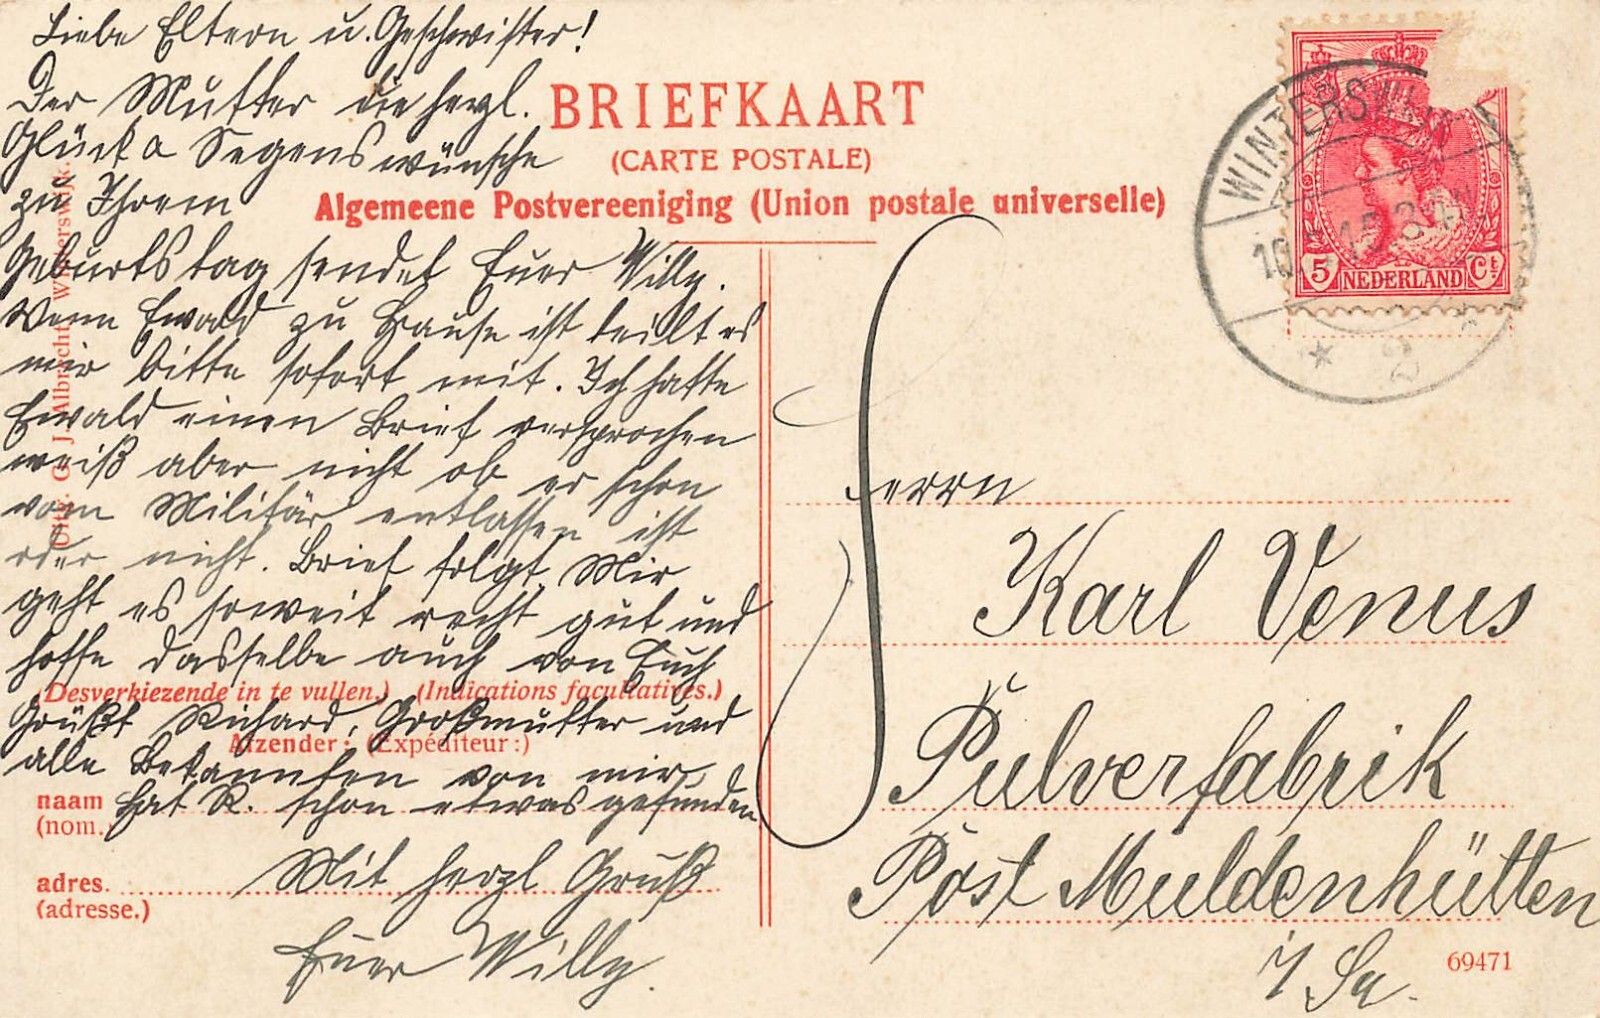 Liebe Eltern u. Geschwister!
Der Mutter die herzl.
Glück & Segenswünsche
zu Ihrem
Geburtstag sendet Euer Willy.
Wenn Ewald zu Hause ist teilt es
mir bitte sofort mit. Ich hatte
Ewald einen Brief versprochen
weiß aber nicht ob er schon
vom Militär entlassen ist
oder nicht. Brief folgt. Mir
geht es soweit recht gut und
hoffe dasselbe auch von Euch
Grüßt Richard, Großmutter und
alle Bekannten von mir.
Hat R. schon etwas gefunden
Mit herzl Gruß
Euer Willy.
BRIEFKAART
(CARTE POSTALE)
Algemeene Postvereeniging (Union postale universelle)
Uitg. G. J. Albrecht, Winterswijk.
(Desverkiezende in te vullen.) (Indications facultatives.)
Afzender: (Expéditeur:)
naam
(nom.)
adres.
(adresse.)
WINTERSWIJK
10
2
5 NEDERLAND Ct
Herrn
Karl Venus
Pulverfabrik
Post Muldenhütten
i/Sa.
69471